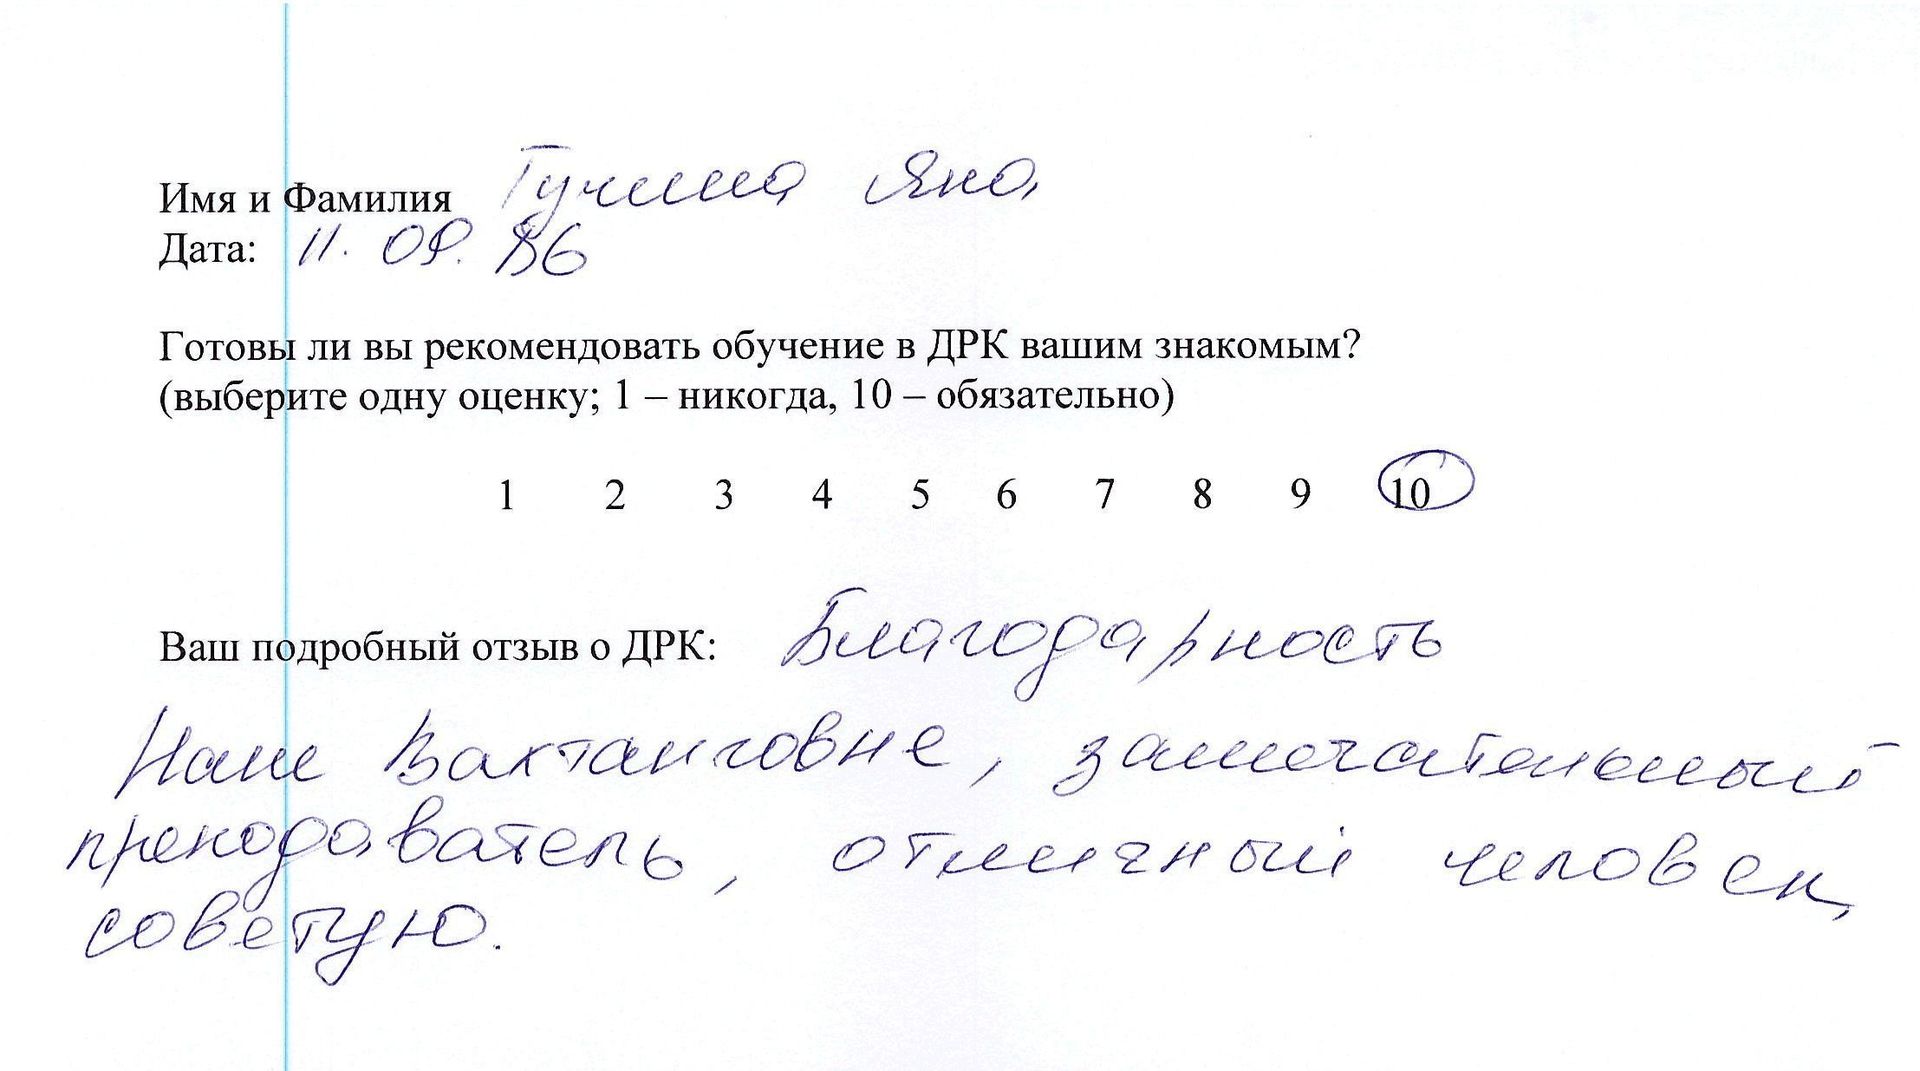 Имя и Фамилия Гучина Яна
Дата: 11. 09. 86
Готовы ли вы рекомендовать обучение в ДРК вашим знакомым?
(выберите одну оценку; 1 – никогда, 10 – обязательно)
1 2 3 4 5 6 7 8 9 10
Ваш подробный отзыв о ДРК: Благодарность
Вахтанговне, замечательный
преподаватель, отличный человек,
советую.